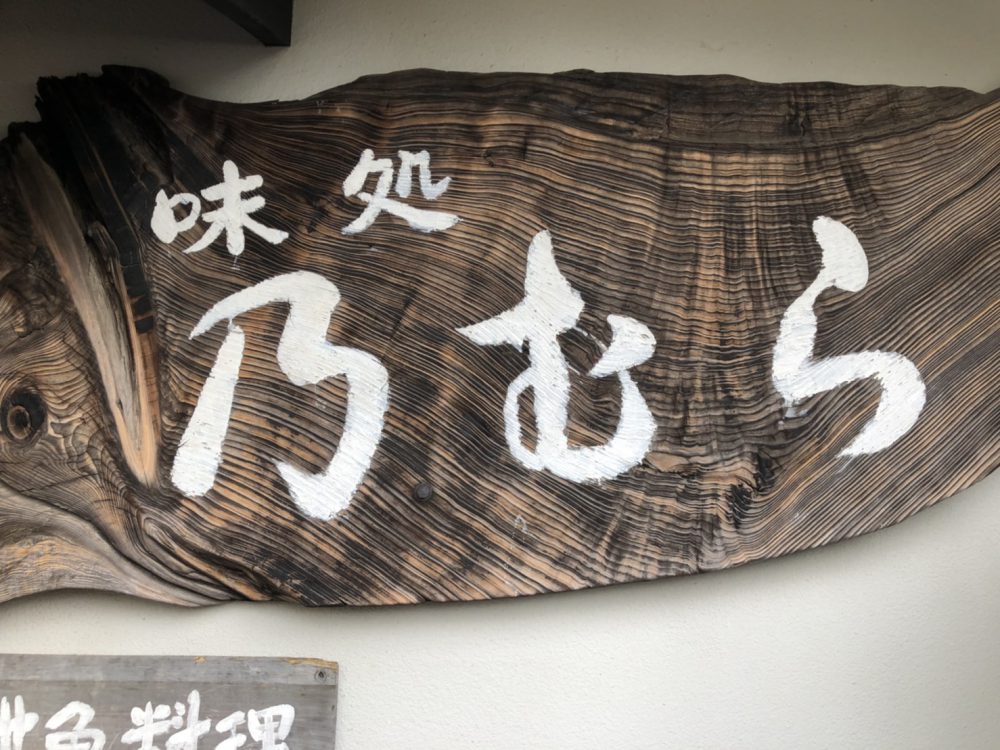 味処
乃むら
魚料理